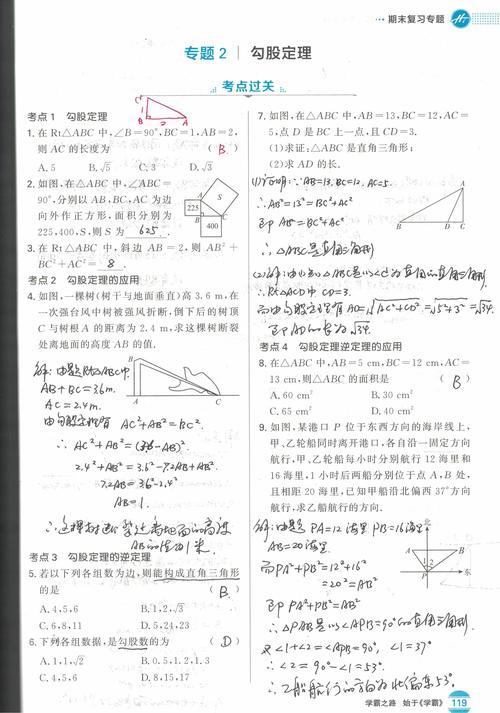 期末复习专题
专题2 勾股定理
考点过关
考点1 勾股定理
1. 在 Rt△ABC 中,∠B=90°,BC=1,AB=2,
则 AC 的长度为 B.
A. 5 B. √5 C. 3 D. √3
2. 如图,在△ABC 中,∠ABC=
90°,分别以 AB,BC,AC 为边
向外作正方形,面积分别为
225,400,S,则 S 为 625.
A
S
225
B
C
400
3. 在 Rt△ABC 中,斜边 AB=2,则 AB²+
BC²+AC²= 8 .
考点2 勾股定理的应用
4. 如图,一棵树(树干与地面垂直)高 3.6 m,在
一次强台风中树被强风折断,倒下后的树顶
C 与树根 A 的距离为 2.4 m,求这棵树断裂
处离地面的高度 AB 的值.
解:由题 Rt△ABC中
AB+BC=3.6m.
AC=2.4m.
由勾股定理有 AC²+AB²=BC².
∴ AC²+AB²=(3.6-AB)²
2.4²+AB²=3.6²-7.2AB+AB².
7.2AB=3.6²-2.4²
AB=1.
∴这棵树断裂处离地面的高度
AB的值为1米.
考点3 勾股定理的逆定理
5. 若以下列各组数为边,则能构成直角三角形
的是 ( B )
A. 4,5,6 B. 1,2,√3
C. 6,8,11 D. 5,24,23
6. 下列各组数据,是勾股数的为 ( D )
A. 1,1,√2 B. 0.5,1.2,1.3
C. 4,5,6 D. 5,12,13
7. 如图,在△ABC 中,AB=13,BC=12,AC=
5,点 D 是 BC 上一点,且 CD=3.
(1)求证:△ABC 是直角三角形;
(2)求 AD 的长.
(1)证明:∵AB=13. BC=12, AC=5.
∴AB²=13²=BC²+AC²
即 AB²=BC²+AC²
∴△ABC是直角三角形
(2)解:由(1)知△ABC是以∠C为直角的直角三角形.
∴Rt△ACD中 CD=3.
而由勾股定理有 AD=√AC²+CD²=√5²+3²=√34.
即AD的长为√34.
考点4 勾股定理逆定理的应用
8. 在△ABC 中,AB=5 cm,BC=12 cm,AC=
13 cm,则△ABC 的面积是 ( B )
A. 60 cm² B. 30 cm²
C. 65 cm² D. 40 cm²
9. 如图,某港口 P 位于东西方向的海岸线上,
甲、乙轮船同时离开港口,各自沿一固定方向
航行,甲、乙轮船每小时分别航行 12 海里和
16 海里,1 小时后两船分别位于点 A,B 处,
且相距 20 海里,已知甲船沿北偏西 37°方向
航行,求乙船航行的方向.
解:由题 PA=12海里 PB=16海里
AB=20海里.
而PA²+PB²=12²+16²
=20²=AB²
即 PA²+PB²=AB²
∴△PAB是以∠APB=90°的直角三角形.
又∠1+∠2=∠APB=90°, ∠1=37°
∴∠2=90°-∠1=53°.
∴乙船航行的方向为北偏东53°.
学霸之路 始于《学霸》 119